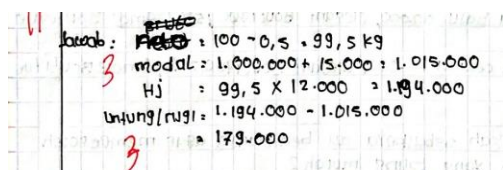 11
bruto
Jawab : Neto = 100 - 0,5 = 99,5 kg
3 modal = 1.000.000 + 15.000 = 1.015.000
Hj = 99,5 x 12.000 = 1.194.000
Untung/rugi = 1.194.000 - 1.015.000
= 179.000
3